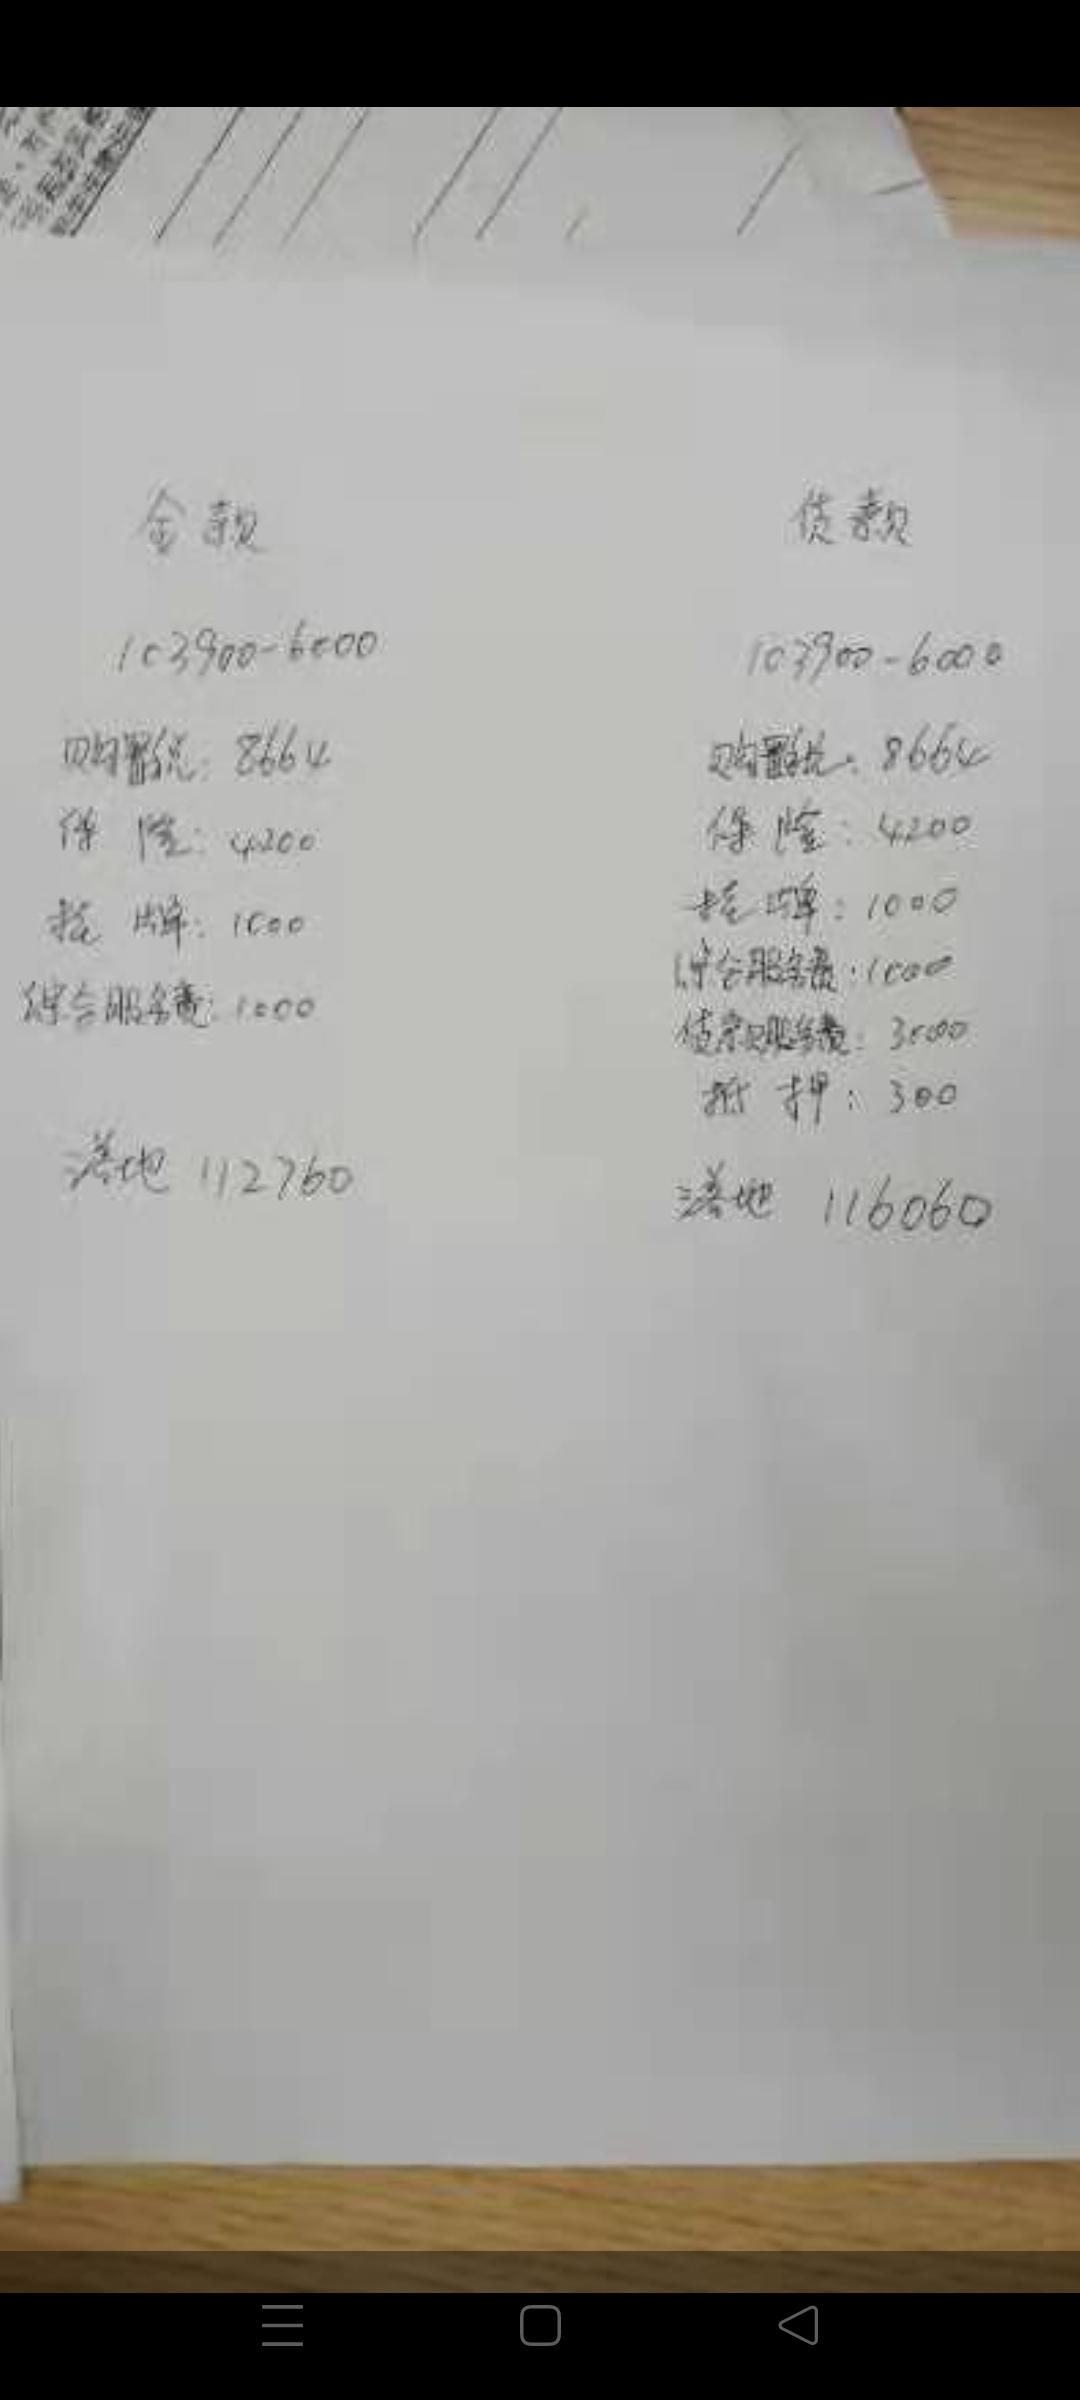 全款
103900-6000
购置税：8664
保险：4200
挂牌：1000
综合服务费：1000
落地 112760
贷款
103900-6000
购置税：8664
保险：4200
挂牌：1000
综合服务费：1000
贷款服务费：3000
抵押：300
落地 116060